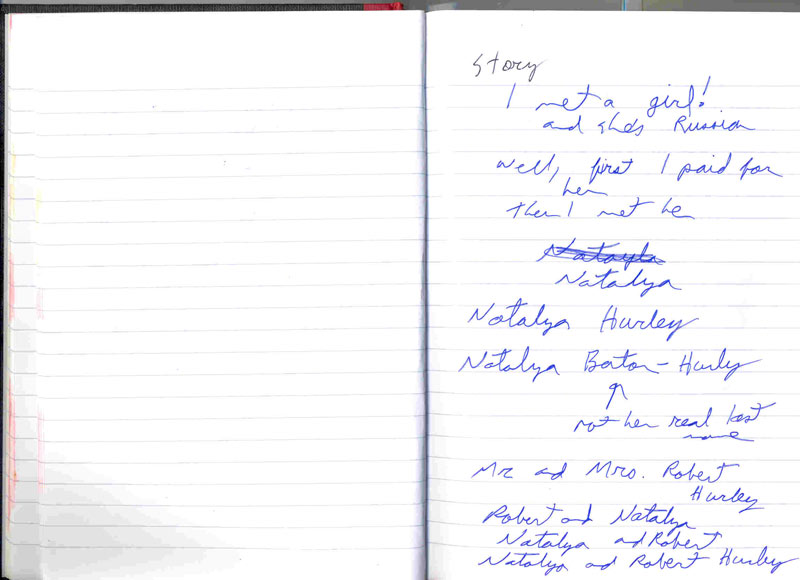 Story
I met a girl!
and she's Russian
Well, first I paid for
her
then I met he
Natayla
Natalya
Natalya Hurley
Natalya Borton-Hurly
↑
not her real last
name
Mr. and Mrs. Robert
Hurley
Robert and Natalya
Natalya and Robert
Natalya and Robert Hurley